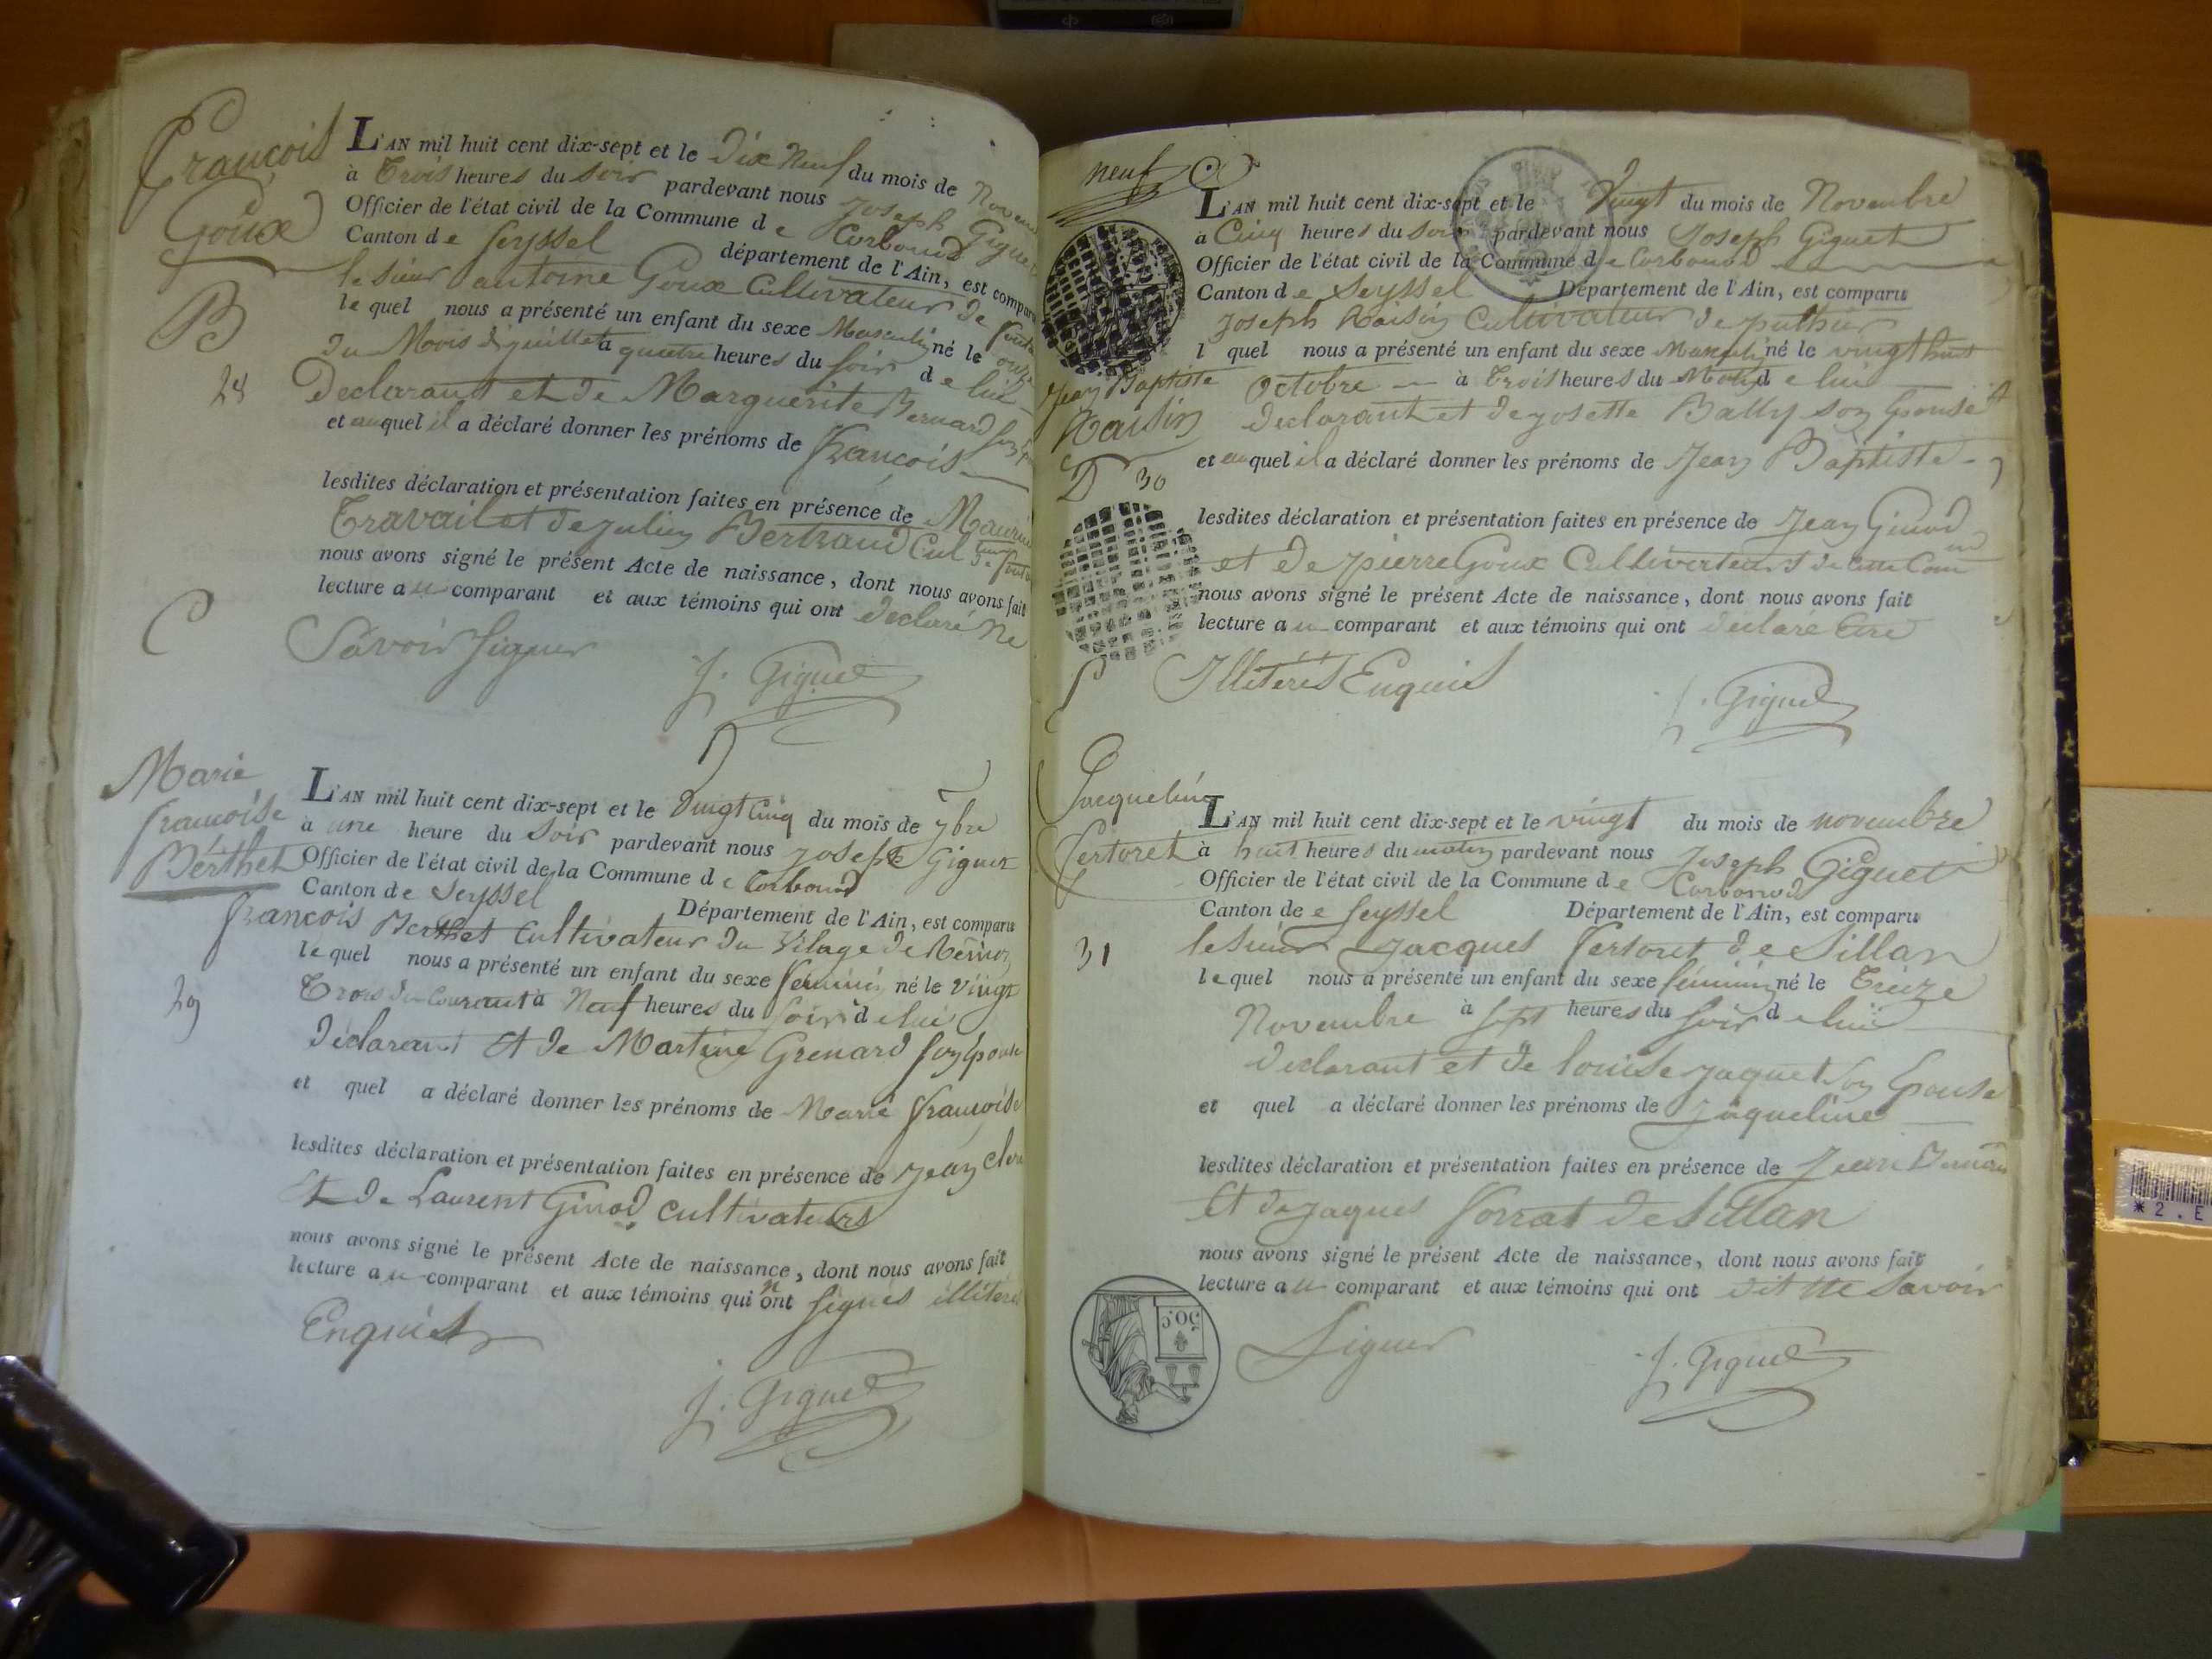 François
Goux
B
28
C
L'AN mil huit cent dix-sept et le dix Neuf du mois de Novem
à Trois heures du soir pardevant nous Joseph Giguet
Officier de l'état civil de la Commune de Corbonod
Canton de Seyssel département de l'Ain, est compar
le sieur antoine Goux Cultivateur de
le quel nous a présenté un enfant du sexe Masculin né le onze
du Mois de juillet à quatre heures du soir de lui
Declarant et de Marguerite Bernard son
et auquel il a déclaré donner les prénoms de François
lesdites déclaration et présentation faites en présence de
Travail et de julien Bertrand Cul teur de
nous avons signé le présent Acte de naissance, dont nous avons fait
lecture au comparant et aux témoins qui ont declaré ne
Savoir signer
J. Giguet
Marie
françoise
Berthet
29
L'AN mil huit cent dix-sept et le Vingt Cinq du mois de 9bre
à une heure du soir pardevant nous joseph Giguet
Officier de l'état civil de la Commune de Corbonod
Canton de Seyssel Département de l'Ain, est comparu
françois Berthet Cultivateur du Vilage de
le quel nous a présenté un enfant du sexe féminin né le vingt
Trois du Courant à Neuf heures du soir de lui
déclarant Et de Martine Grenard son Epouse
et quel a déclaré donner les prénoms de Marie françoise
lesdites déclaration et présentation faites en présence de jean
Et de Laurent Ginod cultivateurs
nous avons signé le présent Acte de naissance, dont nous avons fait
lecture au comparant et aux témoins qui n'ont signés illiterés
Enquis
J. Giguet
neuf
Jean Baptiste
Raisin
D 30
L'AN mil huit cent dix-sept et le Vingt du mois de Novembre
à Cinq heures du soir pardevant nous Joseph Giguet
Officier de l'état civil de la Commune de Corbonod
Canton de Seyssel Département de l'Ain, est comparu
Joseph Raisin Cultivateur de puthier
l quel nous a présenté un enfant du sexe Masculin né le vingt huit
Octobre à Trois heures du Matin de lui
declarant et de josette Bally son Epouse
et auquel il a déclaré donner les prénoms de Jean Baptiste
lesdites déclaration et présentation faites en présence de Jean Ginod
et de pierre Goux Cultivateurs de cette Com
nous avons signé le présent Acte de naissance, dont nous avons fait
lecture au comparant et aux témoins qui ont declare Etre
Illiterés Enquis
J. Giguet
Jacqueline
Sertoret
31
L'AN mil huit cent dix-sept et le vingt du mois de novembre
à huit heures du matin pardevant nous Joseph Giguet
Officier de l'état civil de la Commune de Corbonod
Canton de e Seyssel Département de l'Ain, est comparu
le sieur Jacques Sertoret de Sillan
le quel nous a présenté un enfant du sexe féminin né le Treize
Novembre à sept heures du soir de lui
declarant et de louise jaquet son Epouse
et quel a déclaré donner les prénoms de Jaqueline
lesdites déclaration et présentation faites en présence de Jean
Et de jaques de Sillan
nous avons signé le présent Acte de naissance, dont nous avons fait
lecture au comparant et aux témoins qui ont dit ne savoir
Signer
J. Giguet
50c
*2.E